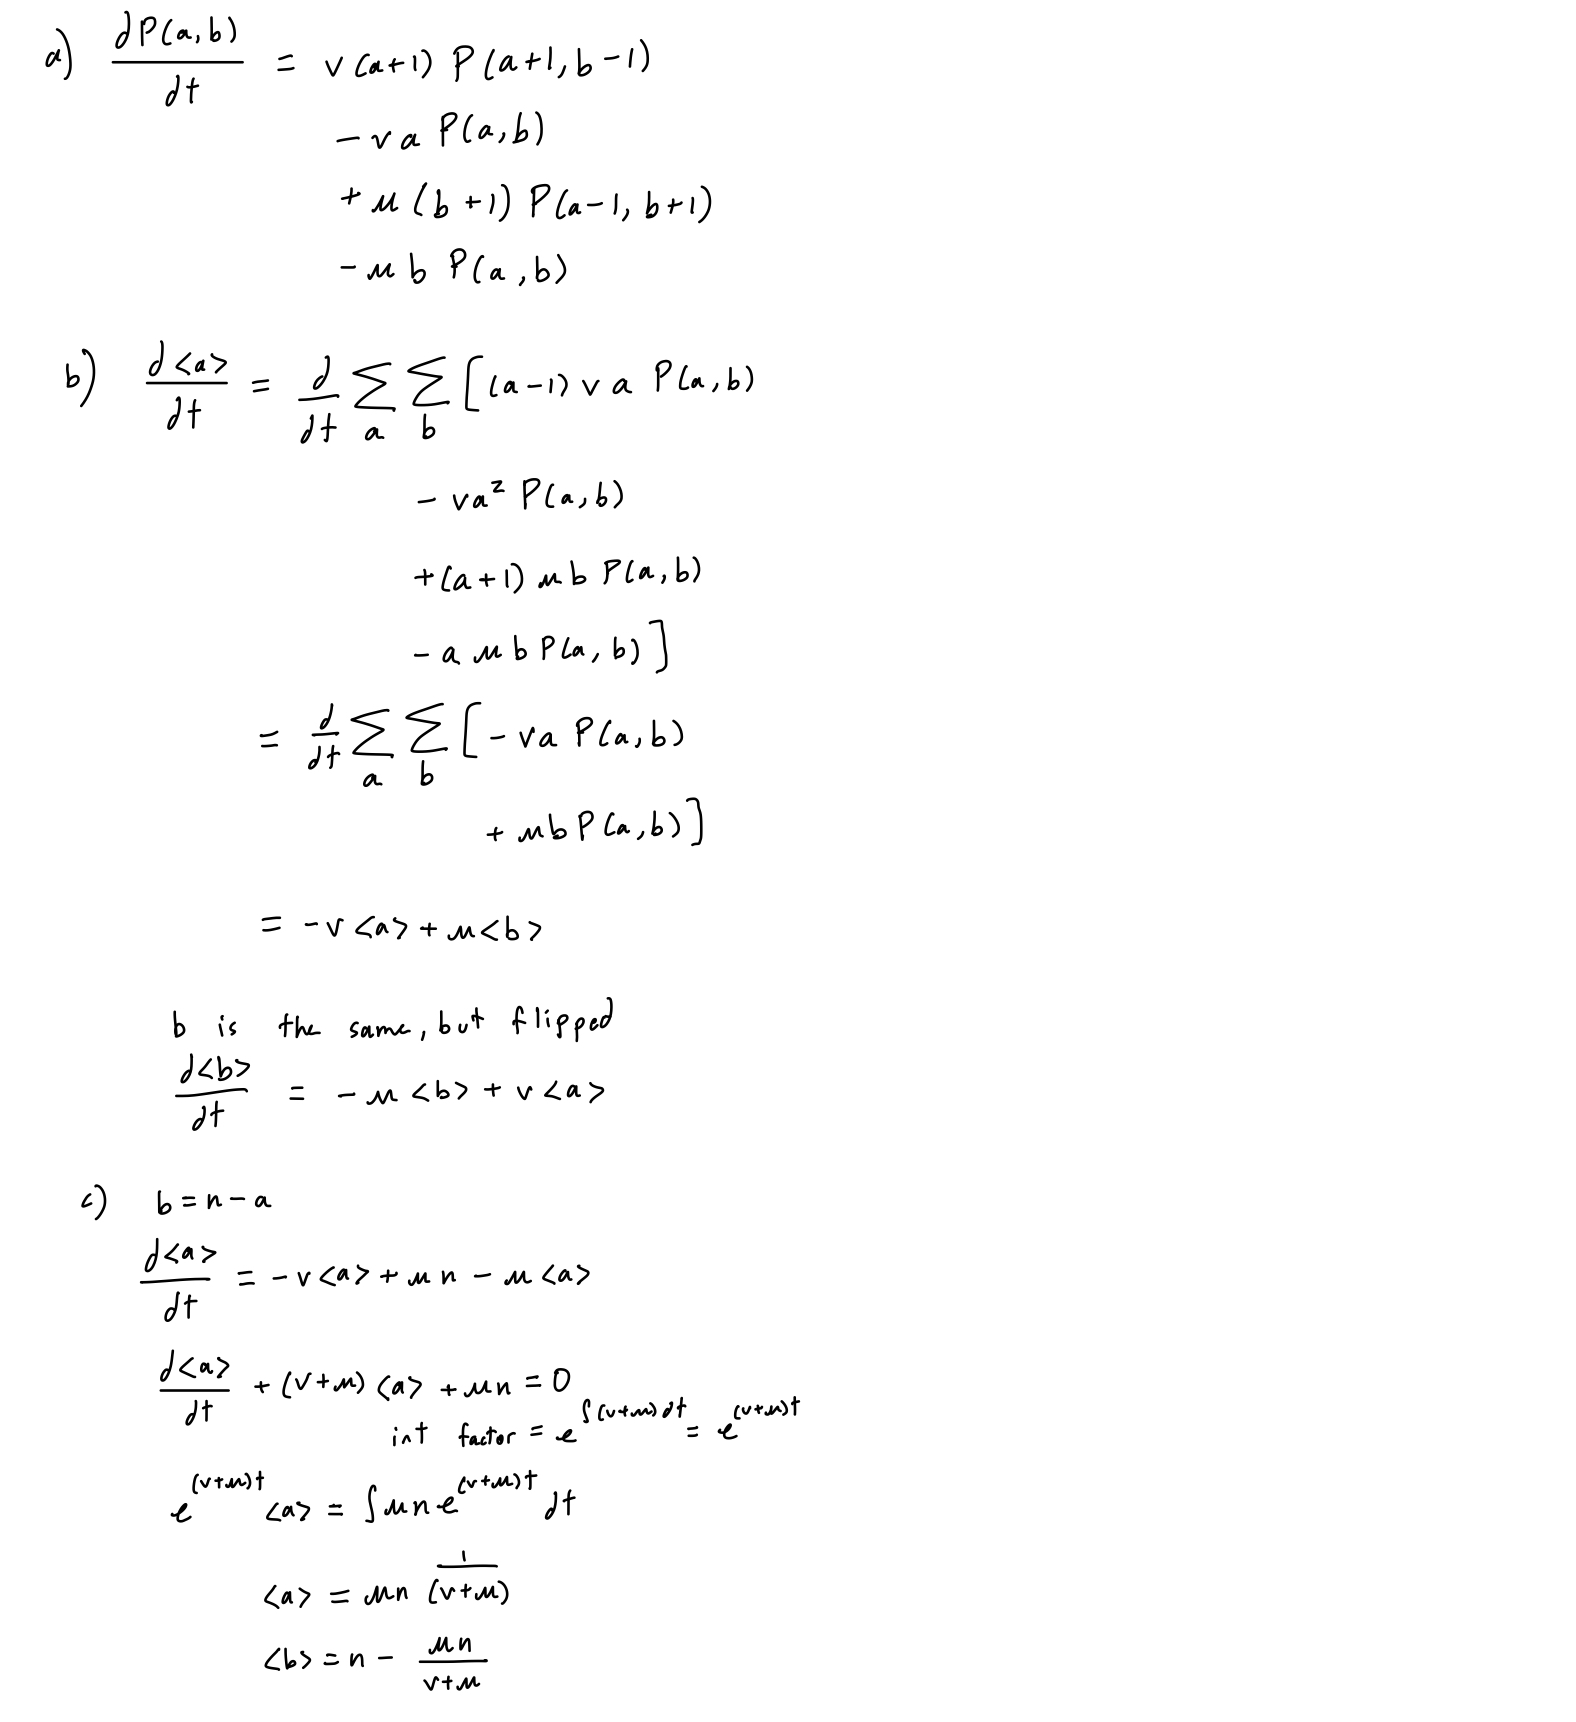 a) dP(a,b)/dt = v(a+1) P(a+1, b-1)
- va P(a,b)
+ μ(b+1) P(a-1, b+1)
- μb P(a,b)
b) d<a>/dt = d/dt Σ_a Σ_b [(a-1) v a P(a,b)
- va² P(a,b)
+(a+1) μb P(a,b)
- a μ b P(a,b)]
= d/dt Σ_a Σ_b [- va P(a,b)
+ μb P(a,b)]
= -v<a> + μ<b>
b is the same, but flipped
d<b>/dt = -μ<b> + v<a>
c) b = n - a
d<a>/dt = -v<a> + μn - μ<a>
d<a>/dt + (v+μ)<a> + μn = 0
int factor = e^∫(v+μ)dt = e^(v+μ)t
e^(v+μ)t <a> = ∫μn e^(v+μ)t dt
<a> = μn 1/(v+μ)
<b> = n - μn/v+μ